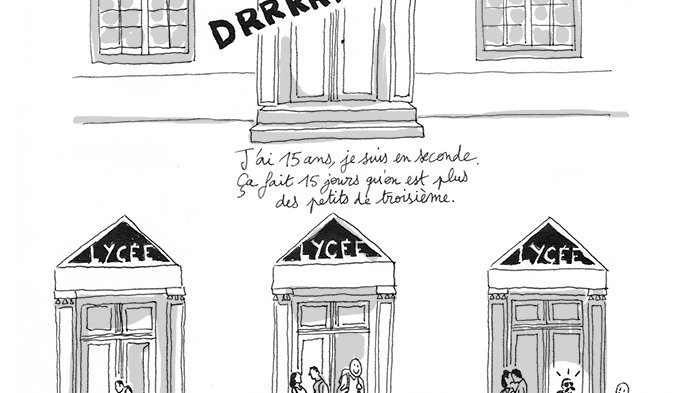 DRRRR
J'ai 15 ans, je suis en seconde.
Ça fait 15 jours qu'on est plus
des petits de troisième.
LYCÉE
LYCÉE
LYCÉE